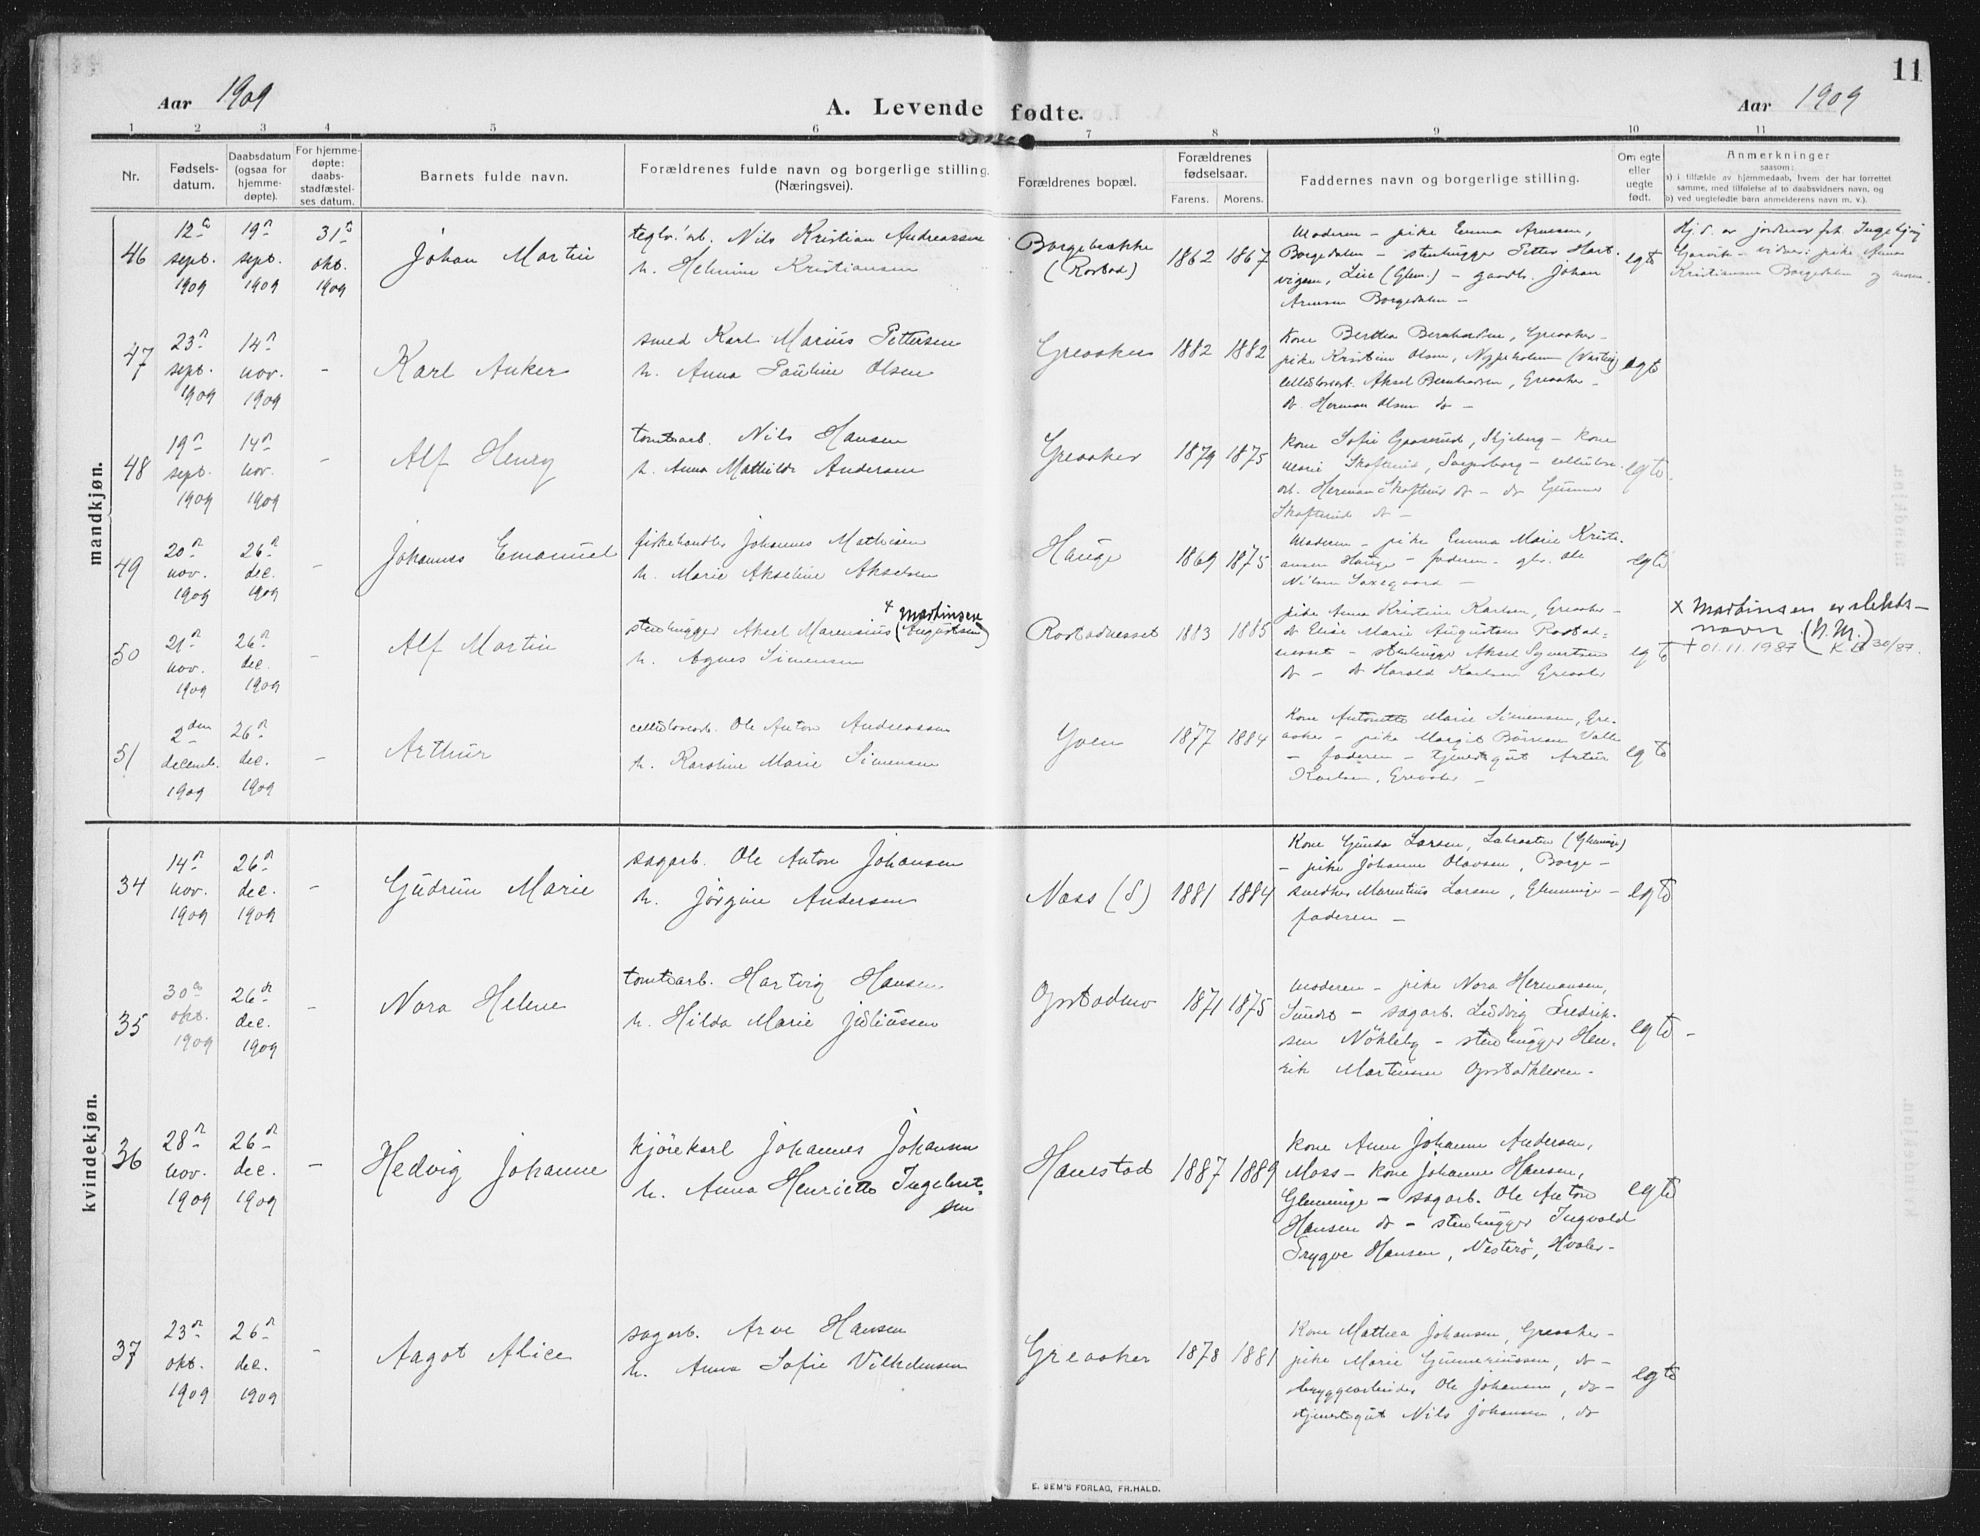 11
Aar 1909
A. Levende fødte.
Aar 1909
1 2 3 4 5 6 7 8 9 10 11
Nr.
Fødsels-
datum.
Daabsdatum
(ogsaa for
hjemme-
døpte).
For hjemme-
døpte:
daabs-
stadfæstel-
ses datum.
Barnets fulde navn.
Forældrenes fulde navn og borgerlige stilling
(Næringsvei).
Forældrenes bopæl.
Forældrenes
fødselsaar.
Farens. Morens.
Faddernes navn og borgerlige stilling.
Om egte
eller
uegte
født.
Anmerkninger
saasom:
a) i tilfælde av hjemmedaab, hvem der har forrettet
samme, med tilføielse af to daabsvidners navn, og
b) ved uegtefødte barn anmelderens navn m. v.).
mandkjøn.
46
12te
sept.
1909
19de
sept.
1909
31te
okt.
1909
Johan Martin
teglv.arb. Nils Kristian Andreassen
h. Helmine Kristiansen
Borgebakke
(Rostad)
1862 1867
Moderen – pike Emma Arnesen,
Borgedalen – stenhugger Petter Hart-
vigsen, Lie (Glem.) – gaardb. Johan
Arnesen Borgedalen –
egte
Hj.d. av jordmor Ingebjørg
Kristiansen Borgedalen og
47
23de
sept.
1909
14de
nov.
1909
–
Karl Anker
smed Karl Marius Pettersen
h. Anna Pauline Olsen
Greaaker
1882 1882
Kone Berthea Bernhardsen, Greaaker
pike Kristine Olsen,
cellulosearb. Aksel Bernhardsen, Greaaker –
do. Herman Olsen do –
egte
48
19de
sept.
1909
14de
nov.
1909
–
Alf Henry
tomtearb. Nils Hansen
h. Anna Mathilde Andersen
Greaaker
1879 1875
Kone Sofie Graserud, Skjeberg – Kone
Marie Skofterud, Sarpsborg – cellulose-
arb. Herman Skofterud do – do Gunnar
Skofterud do –
egte
49
20de
nov.
1909
26de
dec.
1909
–
Johannes Emanuel
fiskehandler Johannes Mathisen
h. Marie Akseline Akselsen
Hauge
1869 1875
Moderen – pike Emma Marie Kristi-
ansen Hauge – faderen – Ole
Nilsen Saxegaard –
egte
50
21de
nov.
1909
26de
dec.
1909
–
Alf Martin
x Martinsen
stenhugger Aksel Marensius (Augustsen)
h. Agnes Simensen
Rostadnesset
1883 1885
pike Anna Kristine Karlsen, Greaaker –
do Elise Marie Augustsen Rostad-
nesset – stenhugger Aksel Syvertsen
do – do Harald Karlsen Greaaker
egte
x Martinsen er slekts-
navn (N.M.)
+ 01.11.1987 (K.B. 30/87.
51
2den
decemb.
1909
26de
dec.
1909
–
Arthur
cellulosearb. Ole Anton Andreassen
h. Karoline Marie Simensen
Yven
1877 1884
Kone Antonette Marie Simensen, Gre-
aaker – pike Margit Børresen Valle
– faderen – tjenestegut Artur
Karlsen, Greaaker –
egte
kvindekjøn.
34
14de
nov.
1909
26de
dec.
1909
–
Gudrun Marie
sagarb. Ole Anton Johansen
h. Jørgine Andersen
Næss (S)
1881 1884
Kone Gunda Larsen, Labraaten (Glemminge)
– pike Johanne Olavsen, Borge –
snedker Marentius Larsen, Glemminge –
faderen –
egte
35
30te
okt.
1909
26de
dec.
1909
–
Nora Helene
tomtearb. Hartvig Hansen
h. Hilda Marie Juliussen
Opstadmo
1871 1875
Moderen – pike Nora Hermansen,
Sundet – sagarb. Ludvig Fredrik-
sen Nøkleby – stenhugger Hen-
rik Martinsen Opstadkleven –
egte –
36
28de
nov.
1909
26de
dec.
1909
–
Hedvig Johanne
kjørekarl Johannes Johansen
h. Anna Henriette Ingebret-
sen
Hanestad
1887 1889
Kone Anne Johanne Andersen,
Moss – kone Johanne Hansen,
Glemminge – sagarb. Ole Anton
Hansen do – stenhugger Ingvald
Trygve Hansen, Vesterø, Hvaler –
egte
37
23de
okt.
1909
26de
dec.
1909
–
Aagot Alice
sagarb. Arve Hansen
h. Anna Sofie Vilhelmsen
Greaaker
1878 1881
Kone Mathea Johansen, Greaaker –
pike Marie Gunneriussen, do –
bryggearbeider Ole Johansen, do –
tjenestegut Nils Johansen, do
egte
E. SEM'S FORLAG, FR.HALD.